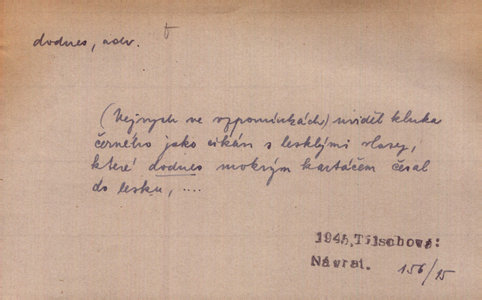 dodnes, adv.
(Vejrych ve vzpomínkách) viděl kluka
černého jako cikán s lesklými vlasy,
které dodnes mokrým kartáčem česal
do lesku, ....
1945, Tilschová:
Návrat. 156/15